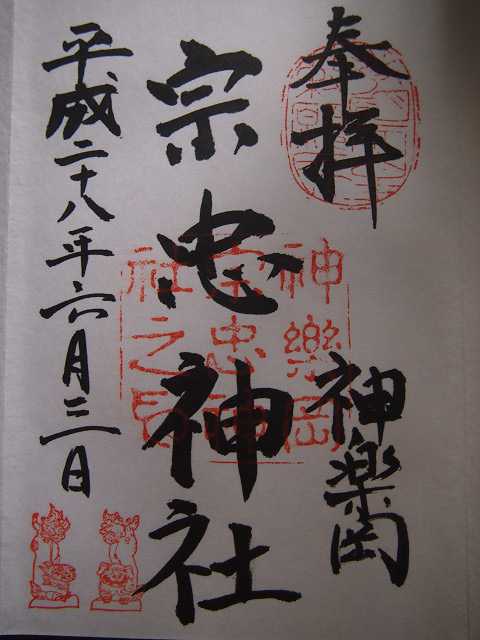 奉拝
神楽岡
宗忠神社
平成二十八年六月三日
神樂岡
宗忠神
社之印